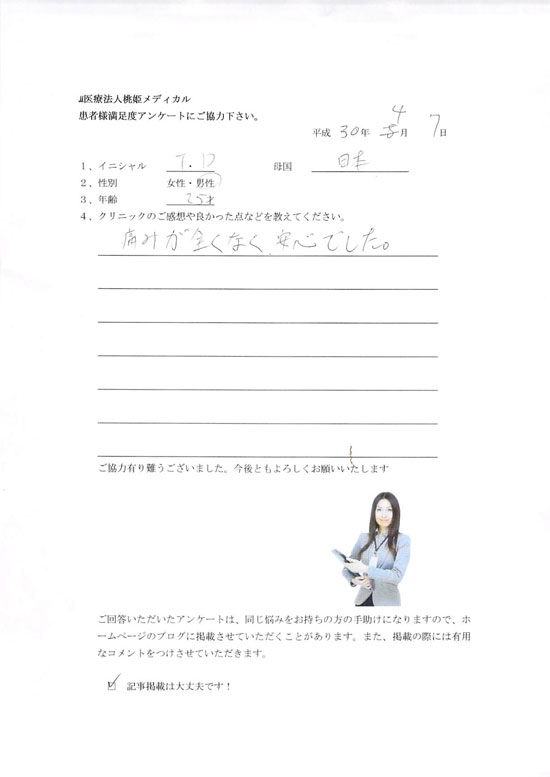 医療法人桃姫メディカル
患者様満足度アンケートにご協力下さい。
平成 30年 4月 7日
1、イニシャル T.D 母国 日本
2、性別 女性・男性
3、年齢 25才
4、クリニックのご感想や良かった点などを教えてください。
痛みが全くなく、安心でした。
ご協力有り難うございました。今後ともよろしくお願いいたします
ご回答いただいたアンケートは、同じ悩みをお持ちの方の手助けになりますので、ホ
ームページのブログに掲載させていただくことがあります。また、掲載の際には有用
なコメントをつけさせていただきます。
☑ 記事掲載は大丈夫です！